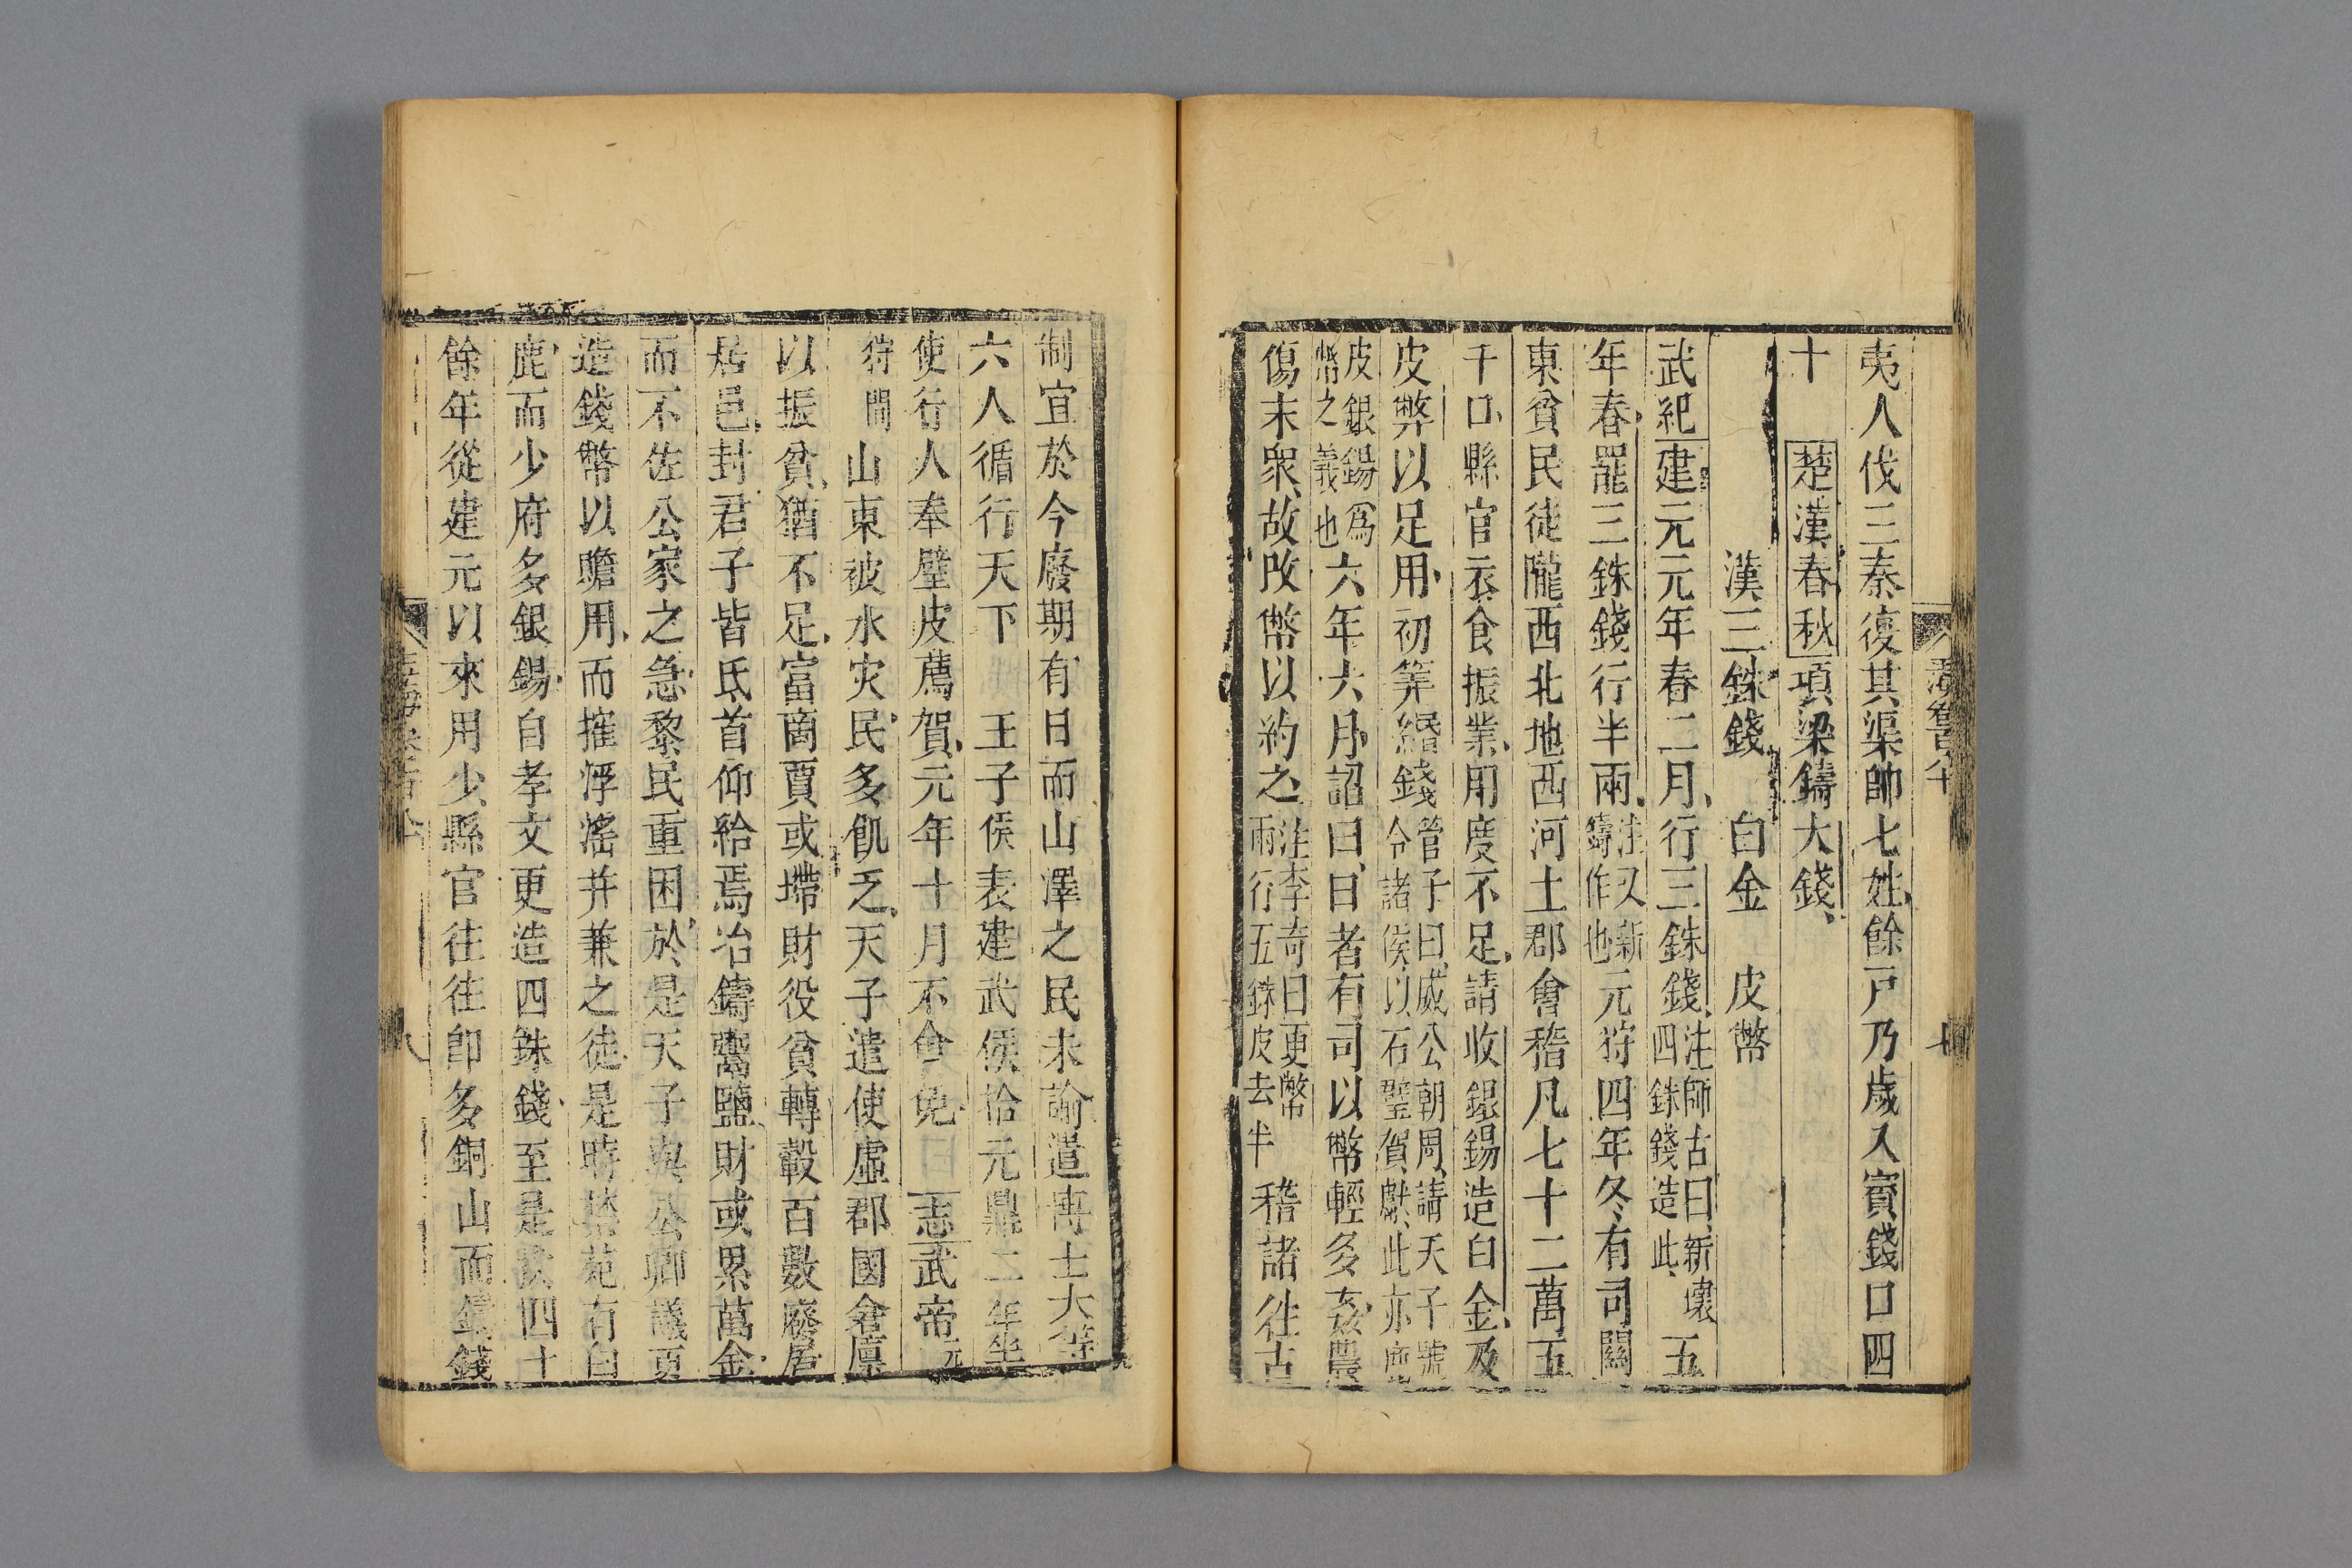 夷人伐三秦復其渠帥七姓餘戸乃歲入賨錢口四
十　楚漢春秋項梁鑄大錢
漢三銖錢　白金　皮幣
武紀建元元年春二月行三銖錢注師古曰新壞四銖錢造此五
年春罷三銖錢行半兩注又新鑄作也元狩四年冬有司關
東貧民徒隴西北地西河土郡會稽凡七十二萬五
千口縣官衣食振業用度不足請收銀錫造白金及
皮幣以足用初筭緡錢管子曰威公朝周請天子號令諸侯以石璧賀獻此亦鹿
皮銀錫爲幣之義也六年六月詔曰日者有司以幣輕多姦農
傷末衆故改幣以約之注李奇曰更幣兩行五銖皮去半稽諸往古
制宜於今廢期有日而山澤之民未諭遣博士大等
六人循行天下　王子侯表建武侯拾元鼎二年坐
使行人奉璧皮薦賀元年十月不會免　志武帝元
狩間山東被水灾民多飢乏天子遣使虛郡國倉廩
以振貧猶不足富商賈或墆財役貧轉轂百數廢居
居邑封君子皆氐首仰給焉冶鑄鬻鹽財或累萬金
而不佐公家之急黎民重困於是天子與公卿議更
造錢幣以贍用而摧浮滛并兼之徒是時禁苑有白
鹿而少府多銀錫自孝文更造四銖錢至是歲四十
餘年從建元以來用少縣官往往卽多銅山而鑄錢